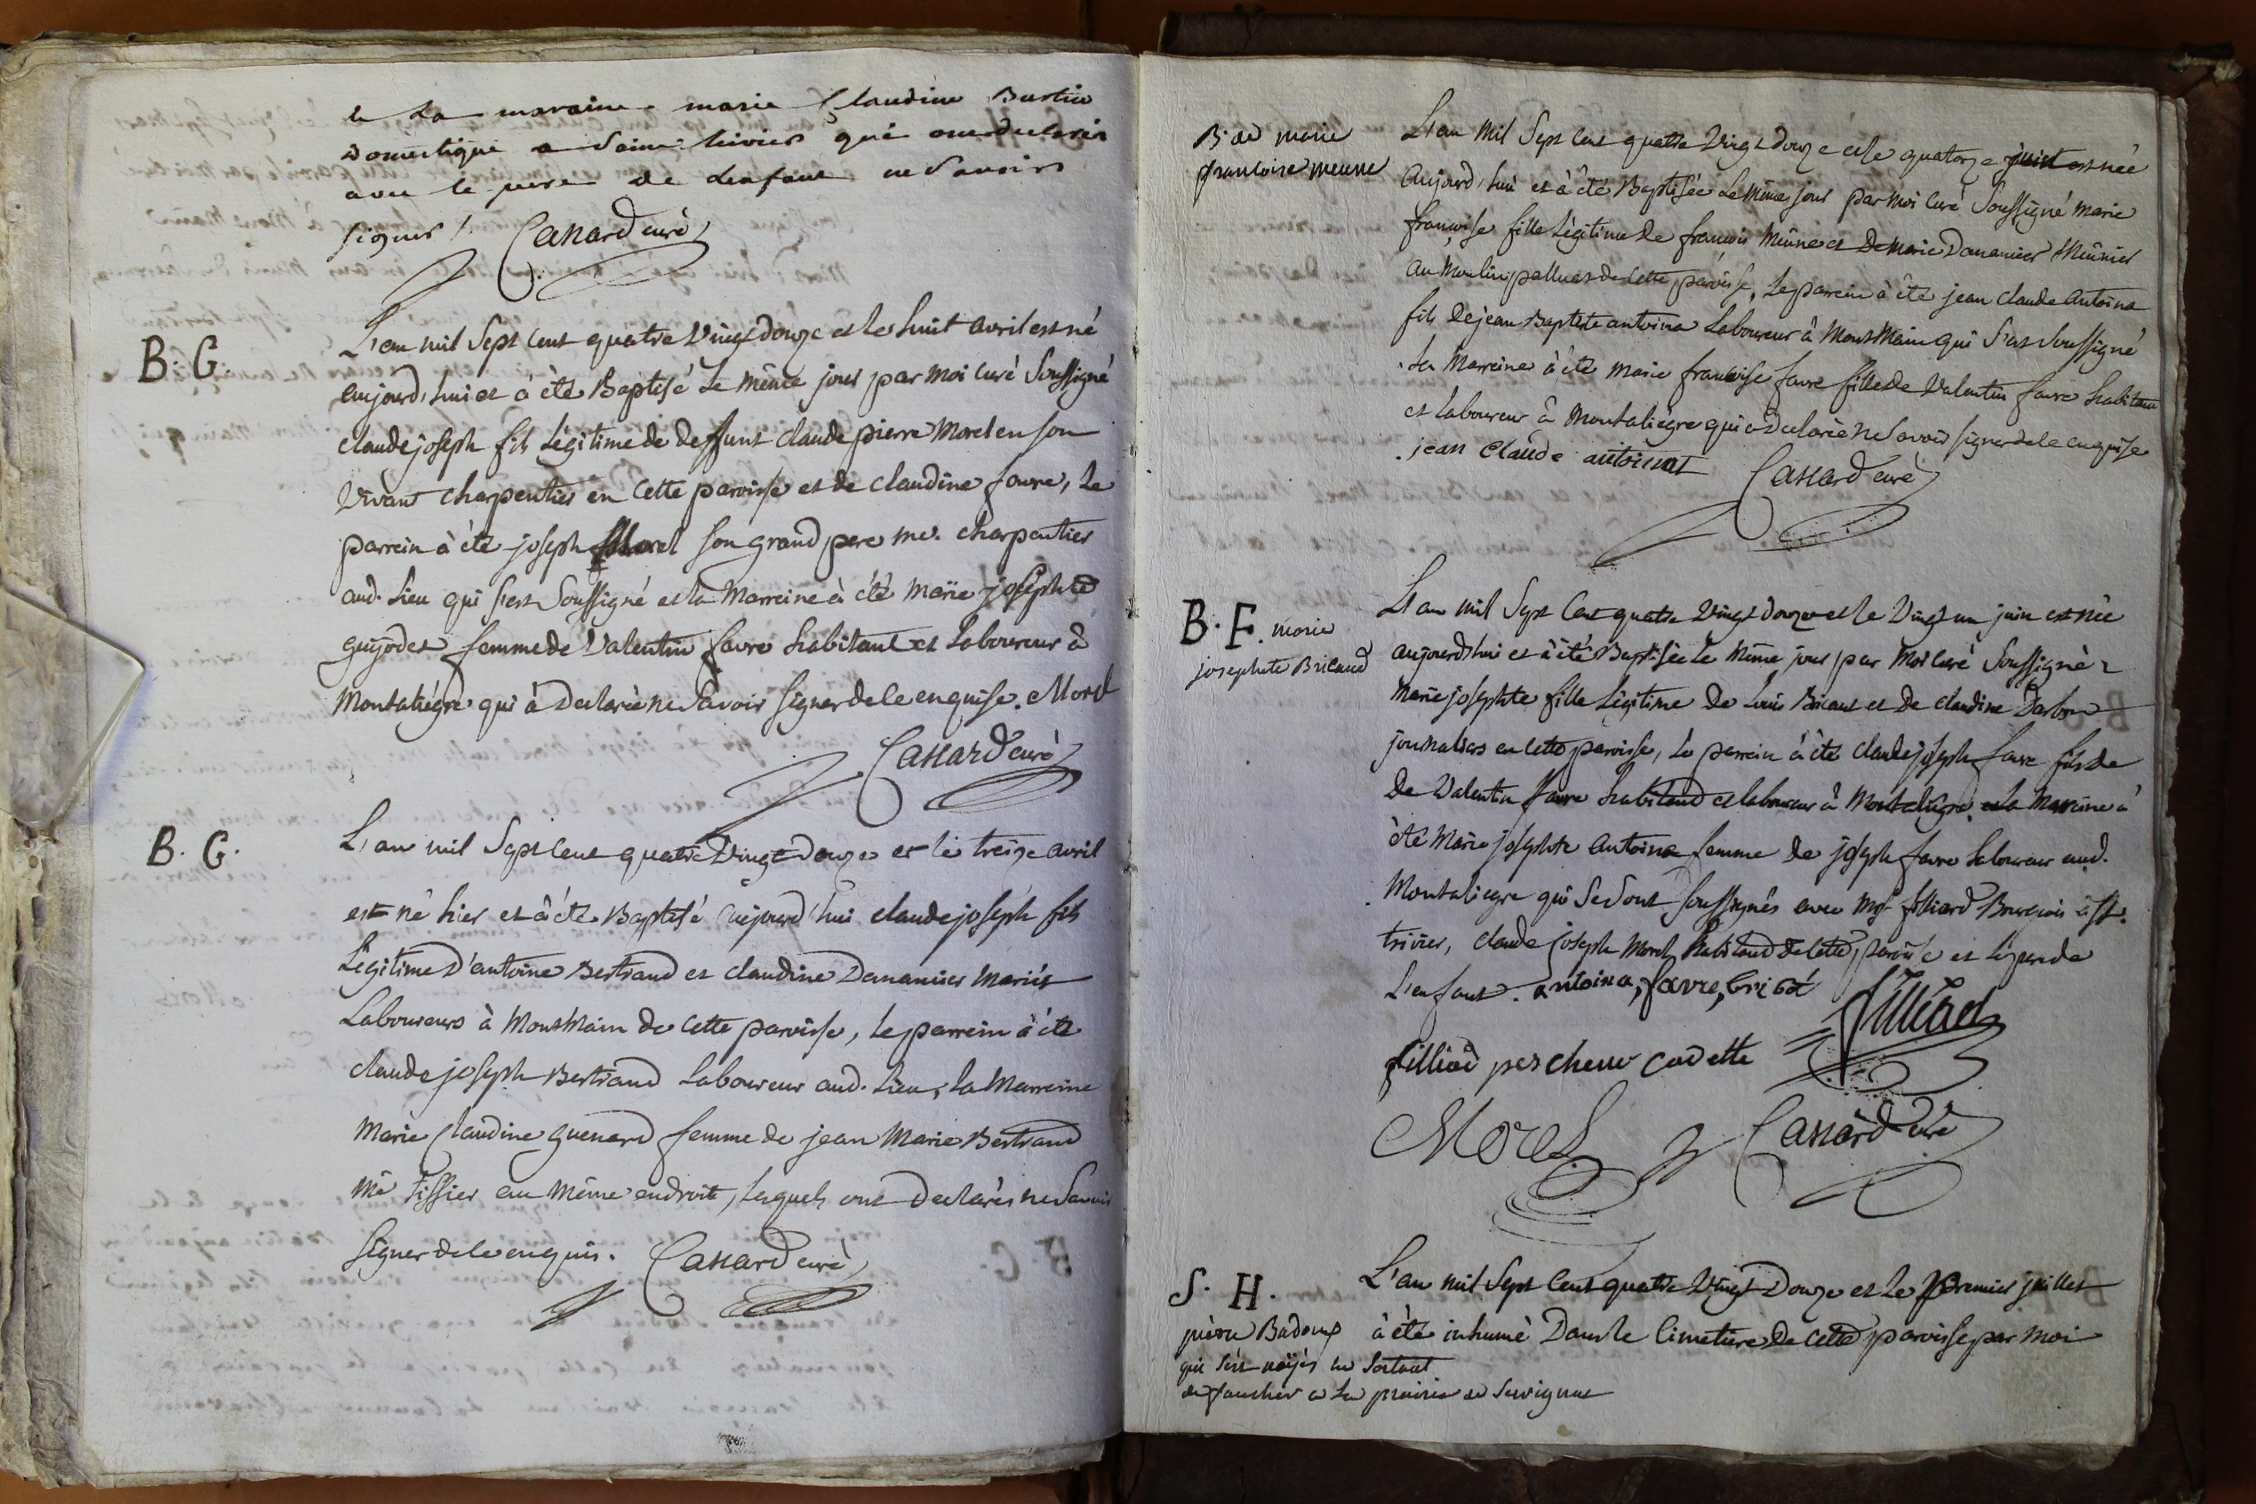 la maraine marie Claudine
Domestique a Saint trivier qui ont declarés
avec le pere de lenfant ne Savoir
signer /. Canard curé
B. G.
L'an mil Sept Cent quatre Vingt douze et le huit avril est né
aujourd'hui et à été Baptisé Le même jour par moi Curé Soussigné
claude joseph fils Légitime de deffunt claude pierre Morel en son
Vivant charpentier en Cette paroisse et de claudine favre, Le
parrein à été joseph Morel son grand pere me. charpentier
aud. Lieu qui s'est Soussigné et la Marreine à été marie josephte
guijodet femme de Valentin favre habitant et Laboureur à
Montaliégre qui à Declarée ne Savoir signer de le enquise. Morel
Canard curé
B. G.
L'an mil Sept Cent quatre Vingt Douze et le treize avril
est né hier et à été Baptisé aujourd'hui claude joseph fils
Legitime D'antoine Bertrand et claudine Dananier Mariés
Laboureurs à Montmain de Cette paroisse, Le parrein à été
claude joseph Bertrand Laboureur aud. Lieu, la Marreine
Marie Claudine guenard femme de jean Marie Bertrand
me Tissier au Même endroit, Lesquels ont Declarés ne Savoir
signer de le enquis. Canard curé
B. de marie
francoise meune
L'an mil Sept Cent quatre Vingt douze et le quatorze juin est née
Aujourd'hui et à été Baptisée Le même jour par moi Curé Soussigné marie
françoise fille Légitime de francois Meûne et De Marie Dananier Meûnier
au Moulin de Cette paroisse, Le parrein à été jean claude Antoina
fils De jean Baptiste antoina Laboureur à Montmain qui s'est Soussigné
La Marreine à été Marie francoise favre fille de Valentin favre habitant
et Laboureur à Montaliégre qui à Declarée ne Savoir signer de le enquise
jean Claude antoina
Canard curé
B. F. marie
josephte Bricaud
L'an mil Sept Cent quatre Vingt douze et le Vingt un juin est née
aujourd'hui et à été Baptisée Le Même jour par Moi Curé Soussigné
Marie josephte fille Légitime De Louis Bricaut et De claudine Darbon
journaliers en Cette paroisse, Le parrein à été claude joseph favre fils de
De Valentin favre habitand et laboureur à Montaliégre, et la Marreine à
été Marie josephte Antoina femme de joseph favre Laboureur aud.
Montaliegre qui Se Sont Soussignés avec Mr filliard Bourgeois à St.
trivier, claude joseph Morel habitand De Cette paroisse et Le pere de
L'enfant. antoina, favre, bricot
filliad
filliod cadette
Morel
Canard curé
S. H.
pierre Badoux
qui s'est noÿés en sortant
de faucher a la prairie de Servignat
L'an mil Sept Cent quatre Vingt Douze et Le Premier juillet
à été inhumé Dans le Cimetiere De Cette paroisse par moi